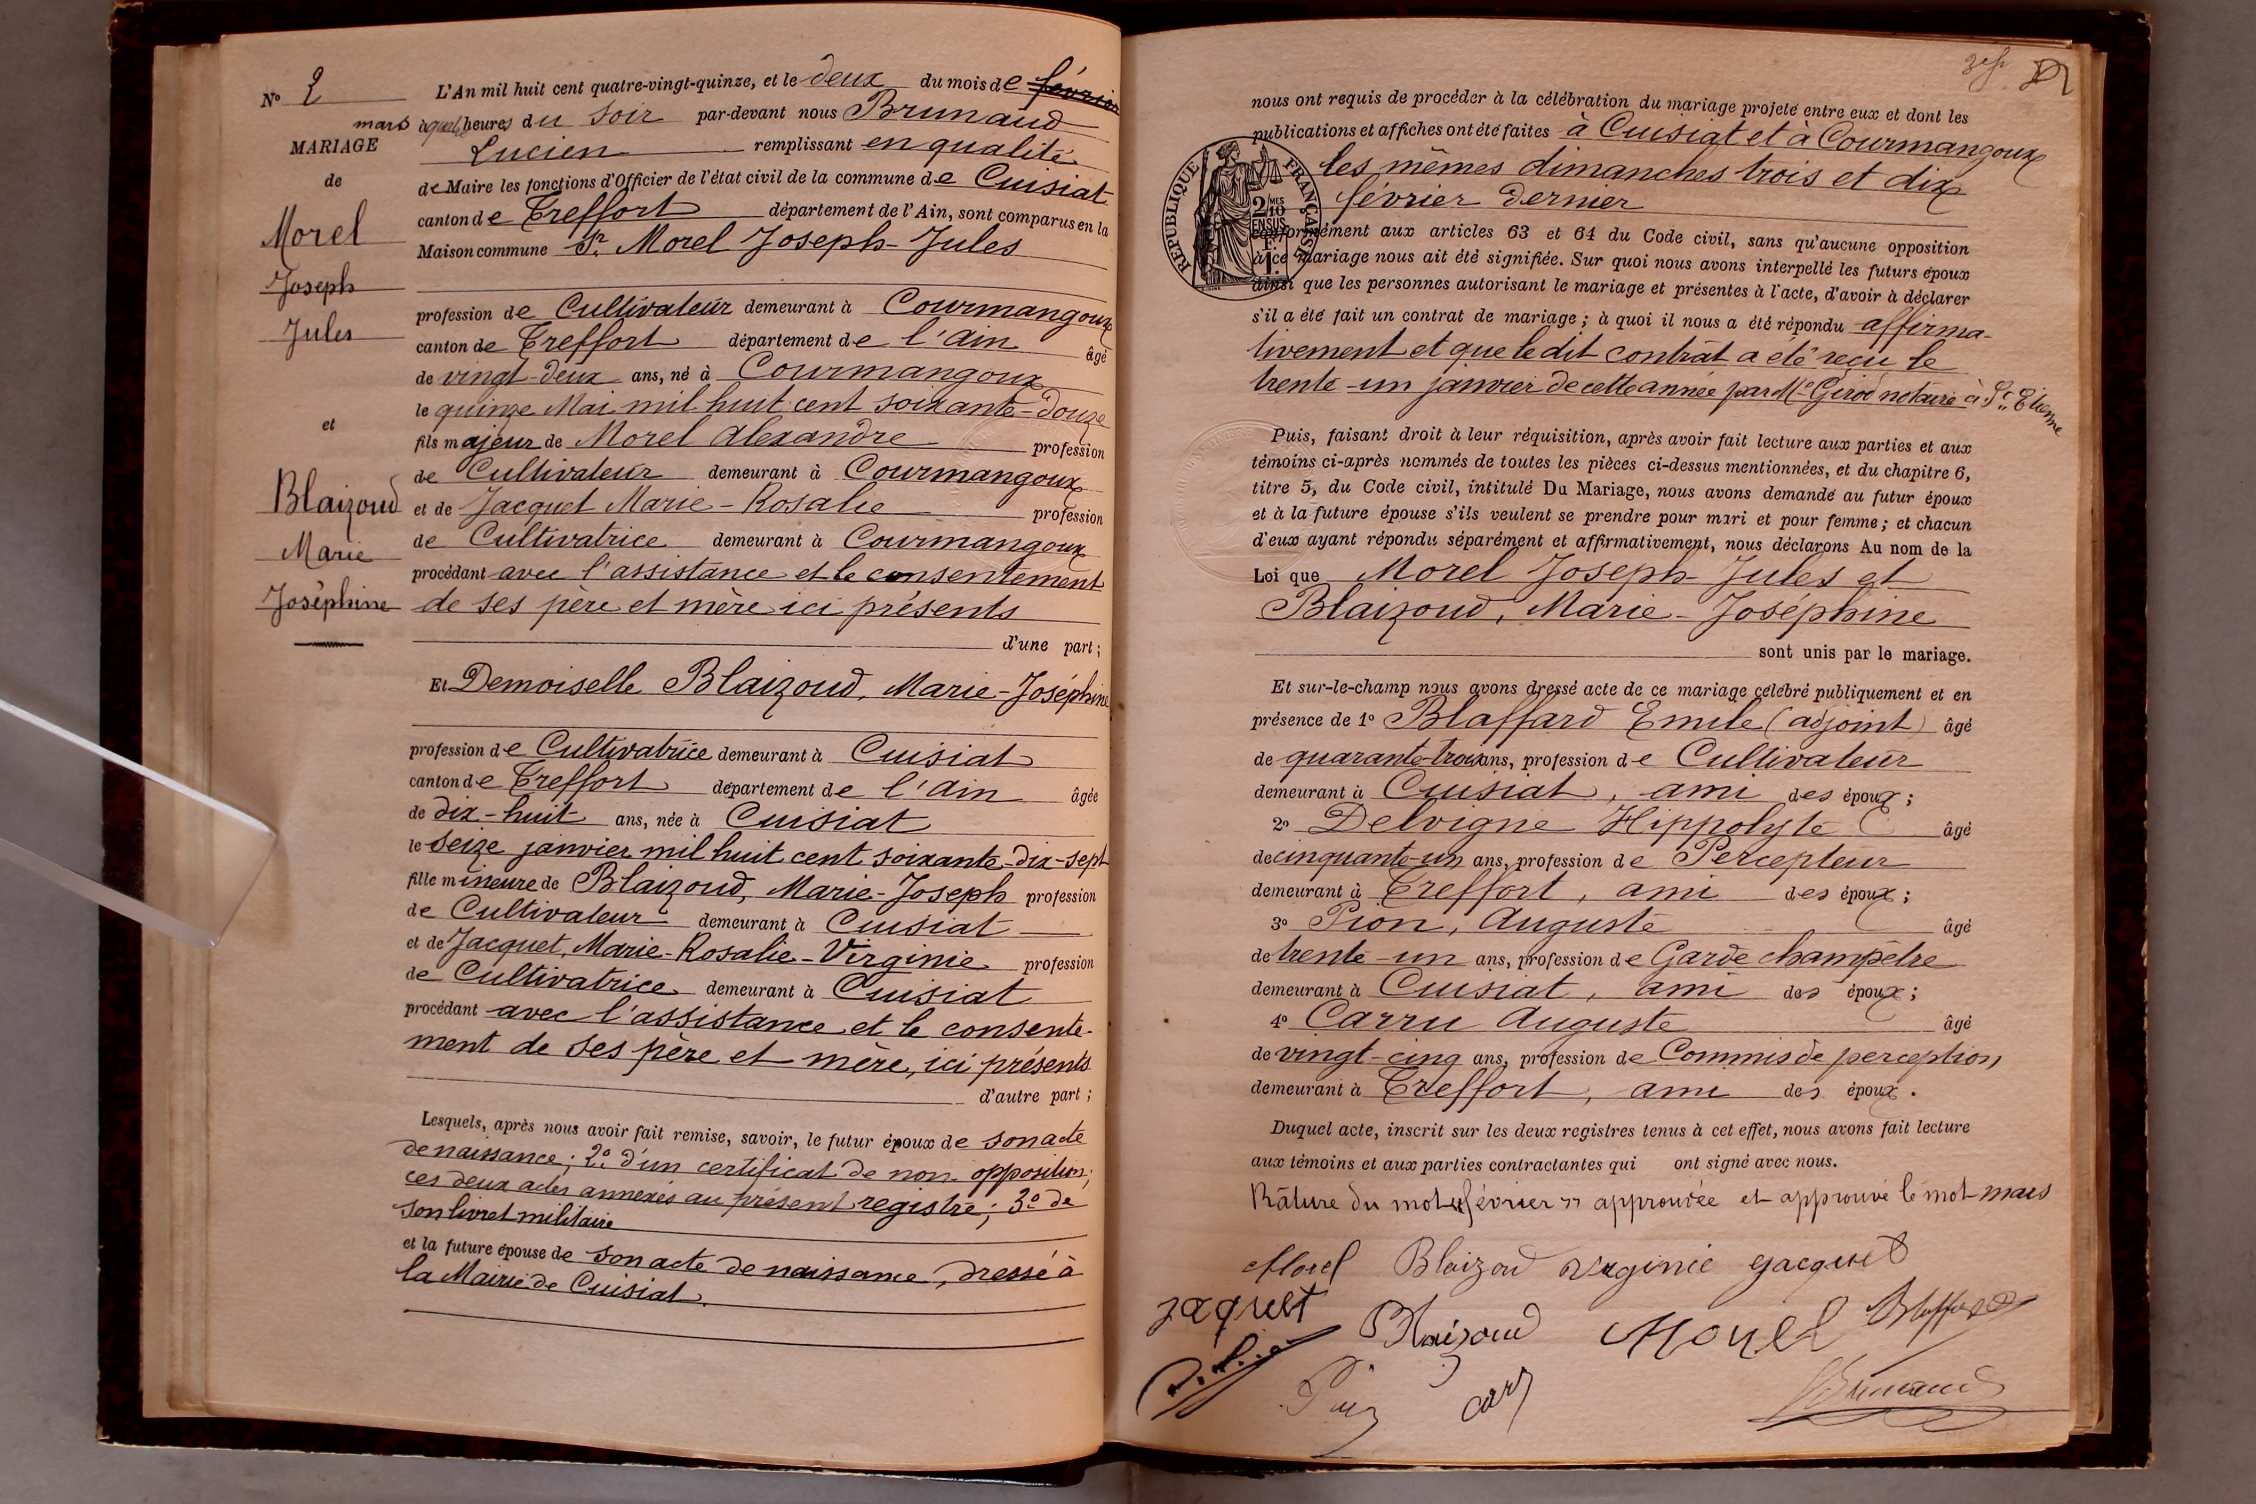 N° 2
MARIAGE
de
Morel
Joseph
Jules
et
Blaizoud
Marie
Joséphine
L'An mil huit cent quatre-vingt-quinze, et le deux du mois de février
mars à quatre heures du soir par-devant nous Brunaud
Lucien remplissant en qualité
de Maire les fonctions d'Officier de l'état civil de la commune de Cuisiat
canton de Treffort département de l'Ain, sont comparus en la
Maison commune Sr Morel Joseph-Jules
profession de Cultivateur demeurant à Courmangoux
canton de Treffort département de l'Ain âgé
de vingt-deux ans, né à Courmangoux
le quinze Mai mil huit cent soixante-douze
fils majeur de Morel Alexandre profession
de Cultivateur demeurant à Courmangoux
et de Jacquet Marie-Rosalie profession
de Cultivatrice demeurant à Courmangoux
procédant avec l'assistance et le consentement
de ses père et mère ici présents
d'une part;
Et Demoiselle Blaizoud, Marie-Joséphine
profession de Cultivatrice demeurant à Cuisiat
canton de Treffort département de l'Ain âgée
de dix-huit ans, née à Cuisiat
le seize janvier mil huit cent soixante-dix-sept
fille mineure de Blaizoud, Marie-Joseph profession
de Cultivateur demeurant à Cuisiat
et de Jacquet, Marie-Rosalie-Virginie profession
de Cultivatrice demeurant à Cuisiat
procédant avec l'assistance et le consente-
ment de ses père et mère, ici présents
d'autre part;
Lesquels, après nous avoir fait remise, savoir, le futur époux de son acte
de naissance; 2° d'un certificat de non opposition;
ces deux actes annexés au présent registre; 3° de
son livret militaire
et la future épouse de son acte de naissance, dressé à
la Mairie de Cuisiat.
nous ont requis de procéder à la célébration du mariage projeté entre eux et dont les
publications et affiches ont été faites à Cuisiat et à Courmangoux
les mêmes dimanches trois et dix
février dernier
RÉPUBLIQUE FRANÇAISE
2 MES 10 EN SUS
conformément aux articles 63 et 64 du Code civil, sans qu'aucune opposition
à ce mariage nous ait été signifiée. Sur quoi nous avons interpellé les futurs époux
ainsi que les personnes autorisant le mariage et présentes à l'acte, d'avoir à déclarer
s'il a été fait un contrat de mariage; à quoi il nous a été répondu affirma-
tivement et que ledit contrat a été reçu le
trente-un janvier de cette année par Me Girod notaire à St Etienne
Puis, faisant droit à leur réquisition, après avoir fait lecture aux parties et aux
témoins ci-après nommés de toutes les pièces ci-dessus mentionnées, et du chapitre 6,
titre 5, du Code civil, intitulé Du Mariage, nous avons demandé au futur époux
et à la future épouse s'ils veulent se prendre pour mari et pour femme; et chacun
d'eux ayant répondu séparément et affirmativement, nous déclarons Au nom de la
Loi que Morel Joseph-Jules et
Blaizoud, Marie-Joséphine
sont unis par le mariage.
Et sur-le-champ nous avons dressé acte de ce mariage célébré publiquement et en
présence de 1° Blaffard Emile (adjoint) âgé
de quarante-trois ans, profession de Cultivateur
demeurant à Cuisiat, ami des époux;
2° Delvigne Hippolyte âgé
de cinquante-un ans, profession de Percepteur
demeurant à Treffort, ami des époux;
3° Pion, Auguste âgé
de trente-un ans, profession de Garde champêtre
demeurant à Cuisiat, ami des époux;
4° Carru Auguste âgé
de vingt-cinq ans, profession de Commis de perception
demeurant à Treffort, ami des époux.
Duquel acte, inscrit sur les deux registres tenus à cet effet, nous avons fait lecture
aux témoins et aux parties contractantes qui ont signé avec nous.
Râture du mot "février" approuvée et approuvé le mot mars
Morel Blaizoud Virginie Jacquet
Jaquet Blaizoud Morel Blaffard
Brunaud